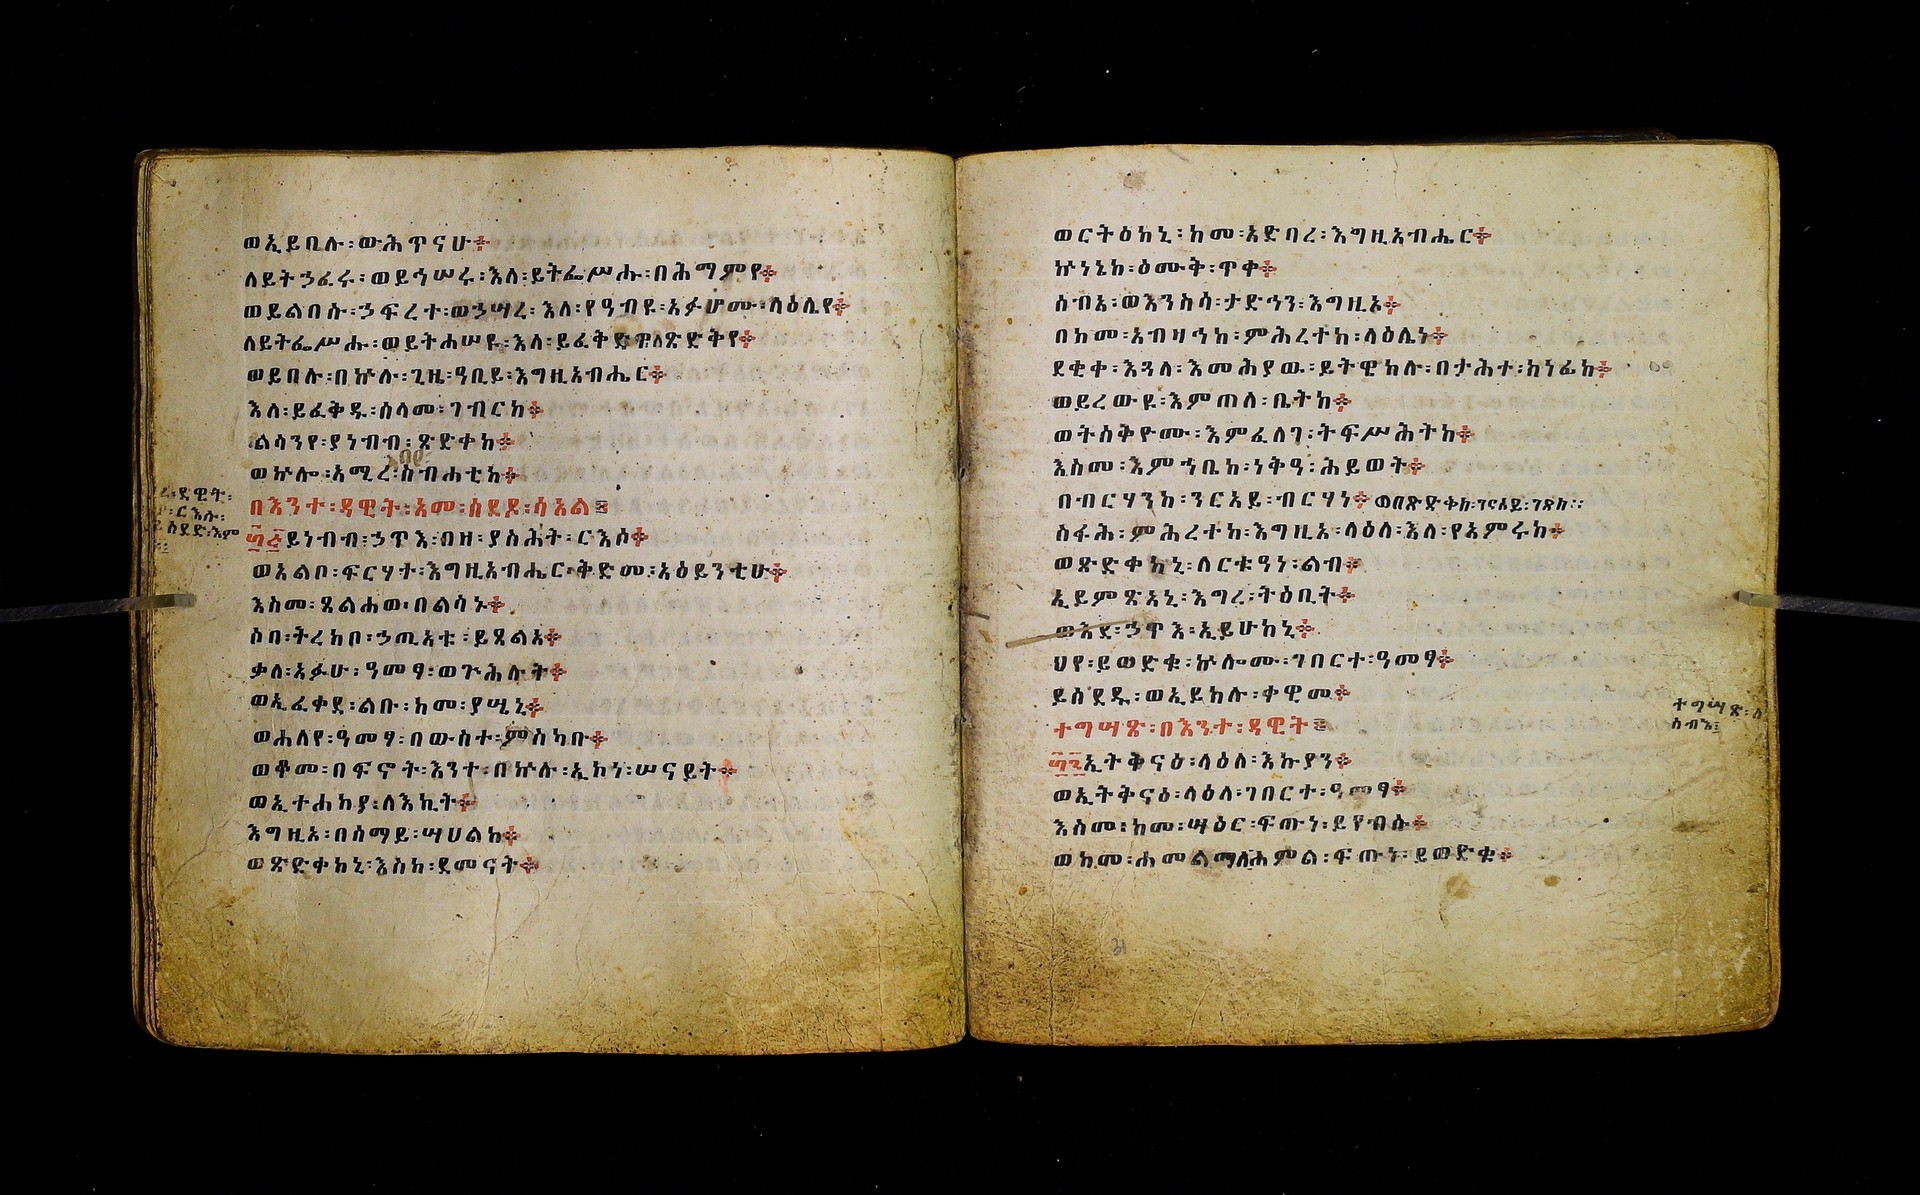 ወኢይቢሉ፡ውሕጥናሁ፨
ለይትኃፈሩ፡ወይኅሠሩ፡እለ፡ይትፌሥሑ፡በሕማምየ፨
ወይልበሱ፡ኃፍረተ፡ወኃሣረ፡እለ፡የዓብዩ፡አፉሆሙ፡ላዕሌየ፨
ለይትፌሥሑ፡ወይትሐሠዩ፡እለ፡ይፈቅድዋ፡ለጽድቅየ፨
ወይበሉ፡በኵሉ፡ጊዜ፡ዓቢይ፡እግዚአብሔር፨
እለ፡ይፈቅዱ፡ሰላመ፡ገብርከ፨
ልሳንየ፡ያነብብ፡ጽድቀከ፨
ወኵሎ፡አሚረ፡ስብሐቲከ፨
ረ፡ደዊት፡
ርእሱ፡
ይሰደድ፡እም
በእንተ፡ዳዊት፡አመ፡ሰደዶ፡ሳኦል፡፡
፴፭ይነብብ፡ኃጥእ፡በዘ፡ያስሕት፡ርእሰ፨
ወአልቦ፡ፍርሃተ፡እግዚአብሔር፡ቅድመ፡አዕይንቲሁ፨
እስመ፡ጸልሐወ፡በልሳኑ፨
ሶበ፡ትረክቦ፡ኃጢአቱ፡ይጸልአ፨
ቃለ፡አፉሁ፡ዓመፃ፡ወጕሕሉት፨
ወኢፈቀደ፡ልቡ፡ከመ፡ያሠኒ፨
ወሐለየ፡ዓመፃ፡በውስተ፡ምስካቡ፨
ወቆመ፡በፍኖት፡እንተ፡በኵሉ፡ኢኮነ፡ሠናይት፨
ወኢተሐከያ፡ለእኪት፨
እግዚኦ፡በሰማይ፡ሣህልከ፨
ወጽድቀከኒ፡እስከ፡ደመናት፨
ወርትዕከኒ፡ከመ፡አድባረ፡እግዚአብሔር፨
ኵነኔከ፡ዕሙቅ፡ጥቀ፨
ሰብአ፡ወእንስሳ፡ታድኅን፡እግዚኦ፨
በከመ፡አብዛኅከ፡ምሕረተከ፡ላዕሌነ፨
ደቂቀ፡እጓለ፡እመሕያው፡ይትዌከሉ፡በታሕተ፡ክነፊከ፨
ወይረውዩ፡እምጠለ፡ቤትከ፨
ወትሰቅዮሙ፡እምፈለገ፡ትፍሥሕትከ፨
እስመ፡እምኀቤከ፡ነቅዓ፡ሕይወት፨
በብርሃንከ፡ንርአይ፡ብርሃነ፨ ወበጽድቅከ፡
ስፋሕ፡ምሕረተከ፡እግዚኦ፡ላዕለ፡እለ፡የአምሩከ፨
ወጽድቀከኒ፡ለርቱዓነ፡ልብ፨
ኢይምጽአኒ፡እግረ፡ትዕቢት፨
ወእደ፡ኃጥእ፡ኢይሁከኒ፨
ህየ፡ይወድቁ፡ኵሎሙ፡ገበርተ፡ዓመፃ፨
ይሰደዱ፡ወኢይክሉ፡ቀዊመ፨
ተግሣጽ፡በእንተ፡ዳዊት፡፡
ተግሣጽ፡ለ
ሰብእ፡
፴፮ኢትቅናዕ፡ላዕለ፡እኩያን፨
ወኢትቅናዕ፡ላዕለ፡ገበርተ፡ዓመፃ፨
እስመ፡ከመ፡ሣዕር፡ፍጡነ፡ይየብሱ፨
ወከመ፡ሐመልማለ፡ሐምል፡ፍጡነ፡ይወድቁ፨
31